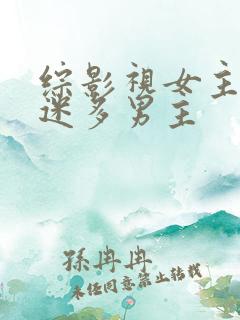 綜影視女主
迷多男主
孫冉冉
未经同意禁止转载